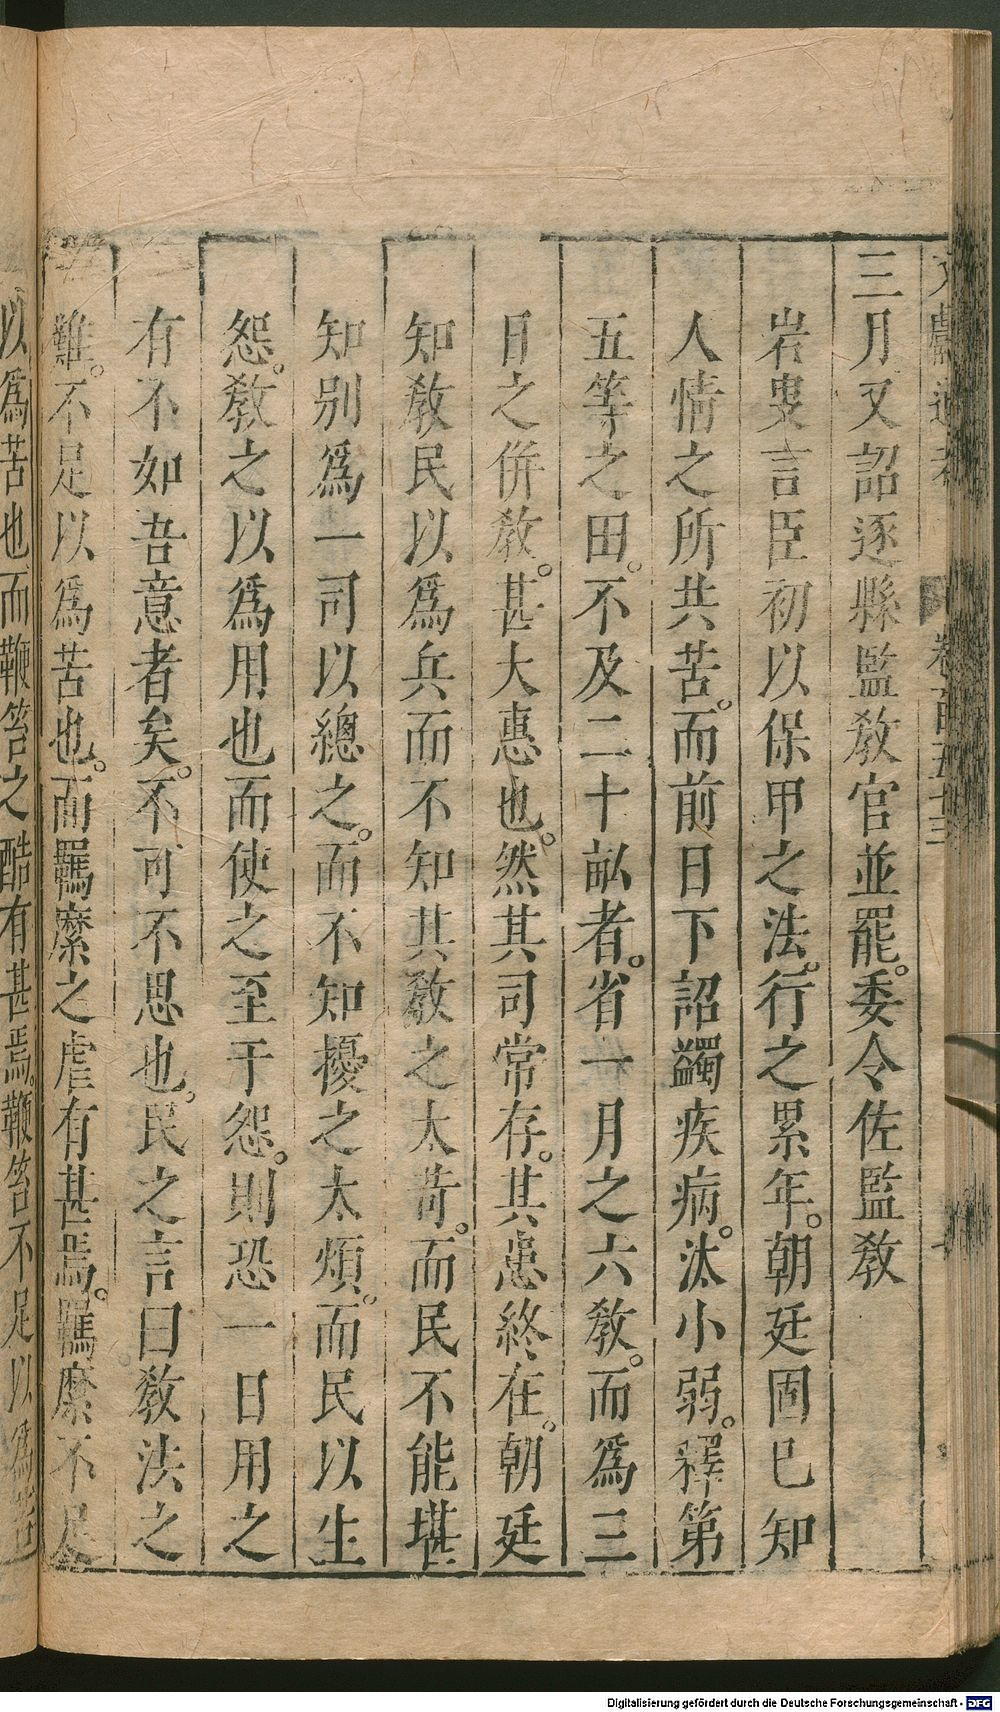 文獻通考 卷一百五十三
三月又詔逐縣監敎官並罷。委令佐監敎
岩叟言臣初以保甲之法。行之累年。朝廷固已知
人情之所共苦。而前日下詔蠲疾病。汰小弱。釋第
五等之田。不及二十畝者。省一月之六敎。而爲三
日之併敎。甚大惠也。然其司常存。其患終在。朝廷
知敎民以爲兵而不知其敎之太苛。而民不能堪
知别爲一司以總之。而不知擾之太煩。而民以生
怨。敎之以爲用也而使之至于怨。則恐一日用之
有不如吾意者矣。不可不思也。民之言曰敎法之
難。不足以爲苦也。而羈縻之虐有甚焉。羈縻不足
以爲苦也而鞭笞之酷有甚焉。鞭笞不足以爲苦
Digitalisierung gefördert durch die Deutsche Forschungsgemeinschaft - DFG